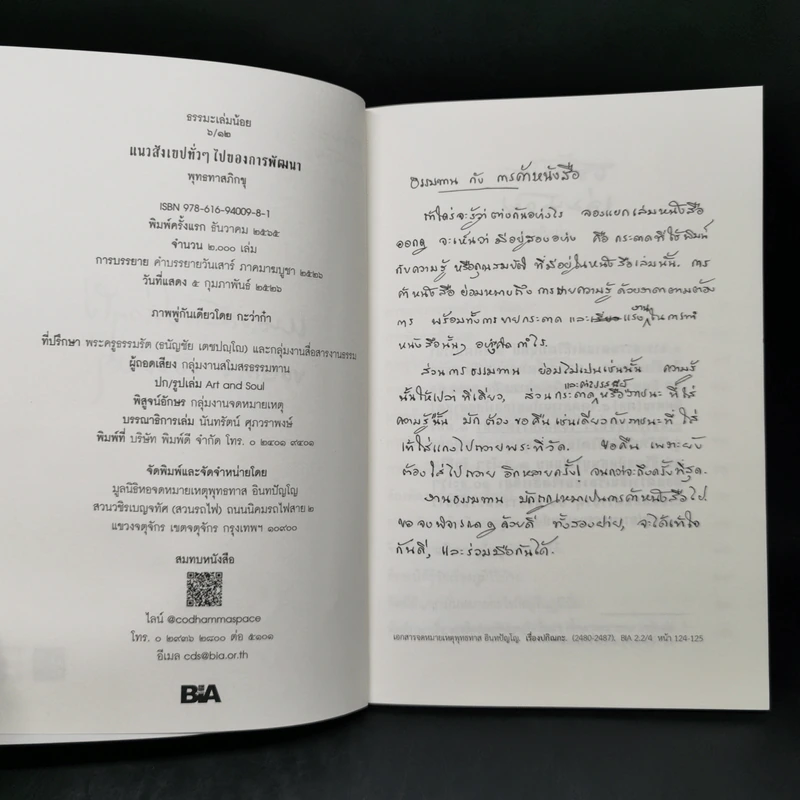 ธรรมะเล่มน้อย
๖/๑๒
แนวสังเขปทั่วๆ ไปของการพัฒนา
พุทธทาสภิกขุ
ISBN 978-616-94009-8-1
พิมพ์ครั้งแรก ธันวาคม ๒๕๖๕
จำนวน ๒,๐๐๐ เล่ม
การบรรยาย คำบรรยายวันเสาร์ ภาคมาฆบูชา ๒๕๒๖
วันที่แสดง ๕ กุมภาพันธ์ ๒๕๒๖
ภาพพู่กันเดียวโดย กะว่าก๋า
ที่ปรึกษา พระครูธรรมรัต (ธนัญชัย เตชปญฺโญ) และกลุ่มงานสื่อสารงานธรรม
ผู้ถอดเสียง กลุ่มงานสโมสรธรรมทาน
ปก/รูปเล่ม Art and Soul
พิสูจน์อักษร กลุ่มงานจดหมายเหตุ
บรรณาธิการเล่ม นันทรัตน์ ศุภวราพงษ์
พิมพ์ที่ บริษัท พิมพ์ดี จำกัด โทร. ๐ ๒๔๐๑ ๙๔๐๑
จัดพิมพ์และจัดจำหน่ายโดย
มูลนิธิหอจดหมายเหตุพุทธทาส อินทปัญโญ
สวนวชิรเบญจทัศ (สวนรถไฟ) ถนนนิคมรถไฟสาย ๒
แขวงจตุจักร เขตจตุจักร กรุงเทพฯ ๑๐๙๐๐
สมทบหนังสือ
ไลน์ @codhammaspace
โทร. ๐ ๒๙๓๖ ๒๘๐๐ ต่อ ๕๑๐๑
อีเมล cds@bia.or.th
BIA
ธรรมทาน กับ การค้าหนังสือ
ถ้าใคร่จะรู้ว่าต่างกันอย่างไร ลองแยกเล่มหนังสือ
ออกดู จะเห็นว่า มีอยู่สองอย่าง คือ กระดาศที่ใช้พิมพ์
กับความรู้ หรือคุณสมบัติ ที่มีอยู่ในหนังสือเล่มนั้น. การ
ค้าหนังสือ ย่อมหมายถึง การขายความรู้ ด้วยราคาตามต้อง
การ พร้อมทั้งการขายกระดาศ และแรงงานในการทำ
หนังสือนั้นๆ อย่างมีกำไร.
ส่วนการธรรมทาน ย่อมไม่เป็นเช่นนั้น ความรู้
นั้นให้เปล่า ทีเดียว, ส่วนกระดาศและค่าบรรจุหรือภาชนะ ที่ใส่
ความรู้นั้น มักต้องขอคืน เช่นเดียวกับภาชนะที่ ใส่
เท้าใส่แกงไปถวายพระที่วัด. ขอคืน เพราะยัง
ต้องใส่ไปถวาย อีกหลายครั้ง! จนกว่าจะถึงครั้งที่สุด.
งานธรรมทาน มักถูกเหมาเป็นการค้าหนังสือไป.
ขอจงพิจารณาดูด้วยดี ทั้งสองฝ่าย, จะได้เข้าใจ
กันดี, และร่วมมือกันได้.
เอกสารจดหมายเหตุพุทธทาส อินทปัญโญ. เรื่องปกิณกะ. (2480-2487). BIA 2.2/4 หน้า 124-125